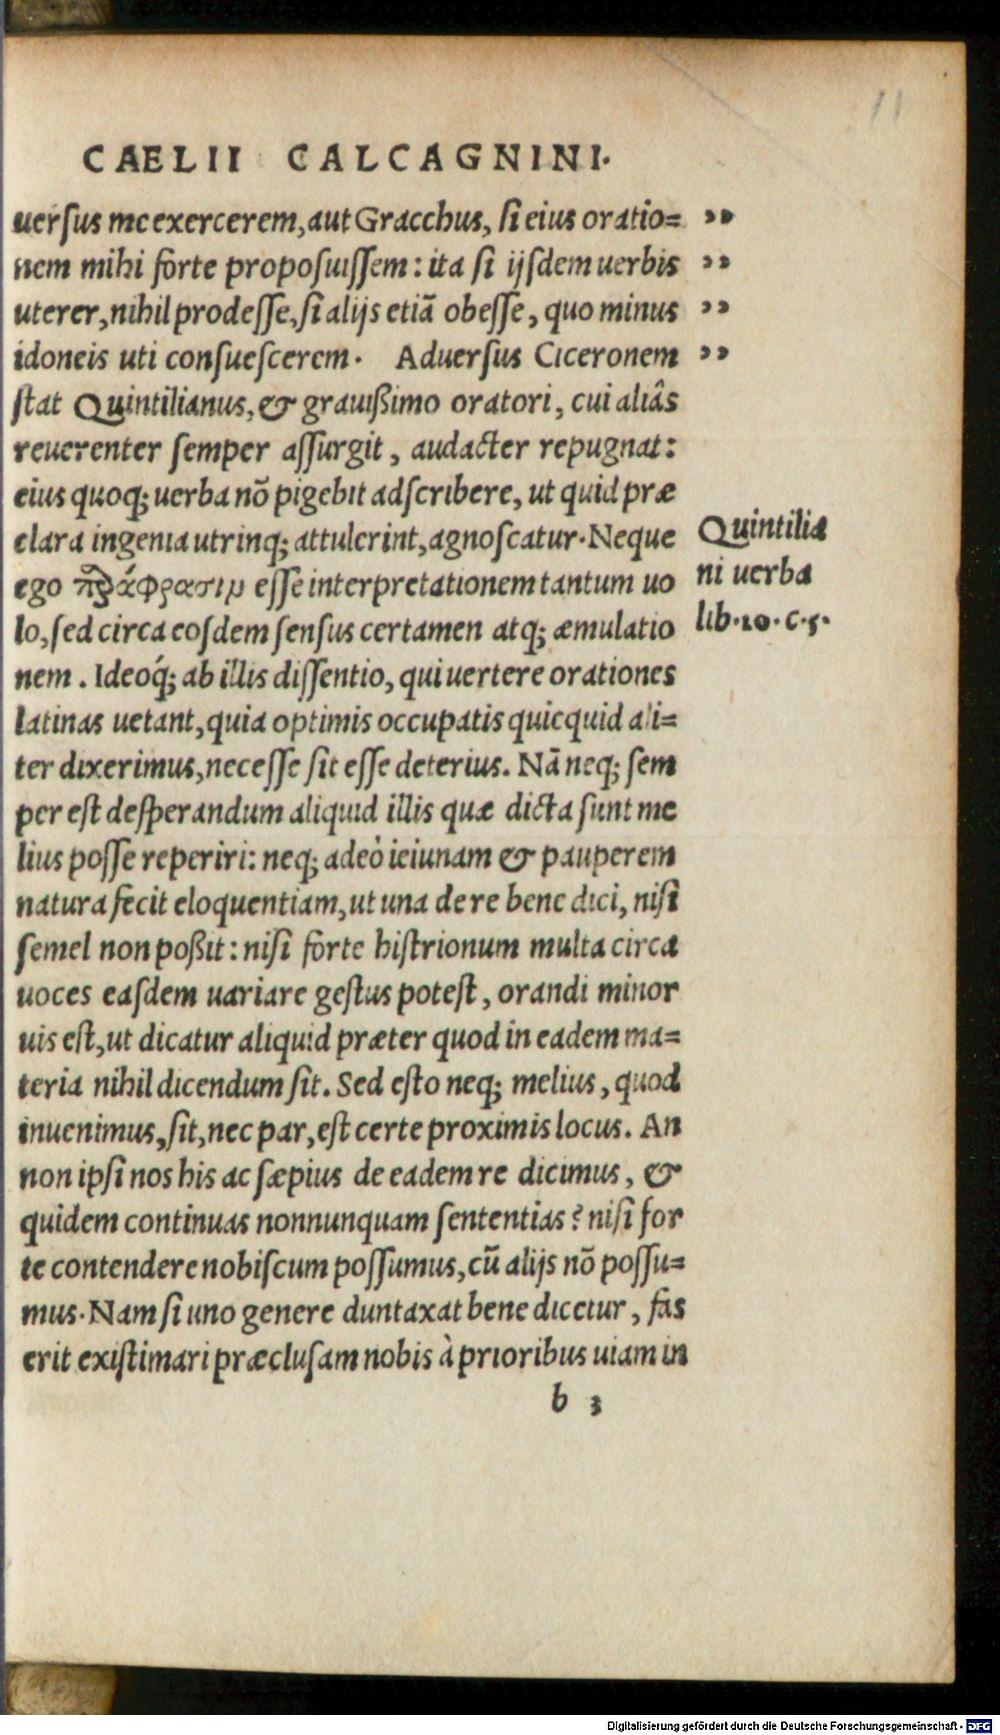 11
CAELII CALCAGNINI.
uersus me exercerem, aut Gracchus, si eius oratio= ”
nem mihi forte proposuissem: ita si ijsdem uerbis ”
uterer, nihil prodesse, si alijs etiã obesse, quo minus ”
idoneis uti consuescerem. Aduersus Ciceronem ”
stat Quintilianus, & grauißimo oratori, cui aliâs
reuerenter semper assurgit, audacter repugnat:
eius quoq; uerba nõ pigebit adscribere, ut quid præ
clara ingenia utrinq; attulerint, agnoscatur. Neque
ego παράφρασιμ esse interpretationem tantum uo
lo, sed circa eosdem sensus certamen atq; æmulatio
nem. Ideoq́; ab illis dissentio, qui uertere orationes
latinas uetant, quia optimis occupatis quicquid ali=
ter dixerimus, necesse sit esse deterius. Nã neq; sem
per est desperandum aliquid illis quæ dicta sunt me
lius posse reperiri: neq; adeò ieiunam & pauperem
natura fecit eloquentiam, ut una de re bene dici, nisi
semel non poßit: nisi forte histrionum multa circa
uoces easdem uariare gestus potest, orandi minor
uis est, ut dicatur aliquid præter quod in eadem ma=
teria nihil dicendum sit. Sed esto neq; melius, quod
inuenimus, sit, nec par, est certe proximis locus. An
non ipsi nos his ac sæpius de eadem re dicimus, &
quidem continuas nonnunquam sententias? nisi for
te contendere nobiscum possumus, cũ alijs nõ possu=
mus. Nam si uno genere duntaxat bene dicetur, fas
erit existimari præclusam nobis à prioribus uiam in
b 3
Quintilia
ni uerba
lib. 10. c. 5.
Digitalisierung gefördert durch die Deutsche Forschungsgemeinschaft - DFG